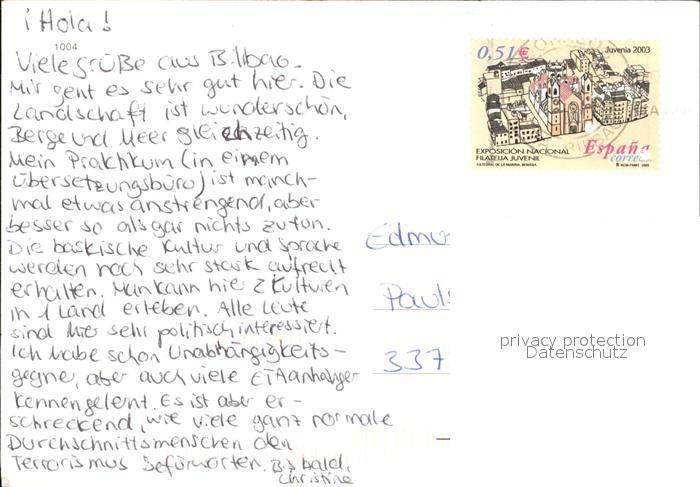 ¡Hola!
1004
Viele Grüße aus Bilbao.
Mir geht es sehr gut hier. Die
Landschaft ist wunderschön,
Berge und Meer gleichzeitig.
Mein Praktikum (in einem
Übersetzungsbüro) ist manch-
mal etwas anstrengend, aber
besser so als gar nichts zu tun.
Die baskische Kultur und Sprache
werden noch sehr stark aufrecht
erhalten. Man kann hier 2 Kulturen
in 1 Land erleben. Alle Leute
sind hier sehr politisch interessiert.
Ich habe schon Unabhängigkeits-
gegner, aber auch viele ETAanhänger
kennengelernt. Es ist aber er-
schreckend, wie viele ganz normale
Durchschnittsmenschen den
Terrorismus befürworten. Bis bald,
Christine
0,51€
Juvenia 2003
EXPOSICIÓN NACIONAL
FILATELIA JUVENIL
España
correos
Edmu
Pauls
337
privacy protection
Datenschutz